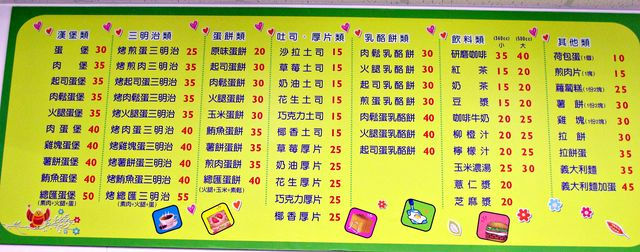 漢堡類
蛋堡 30
肉堡 35
起司蛋堡 35
肉鬆蛋堡 35
火腿蛋堡 35
肉蛋堡 40
雞塊蛋堡 40
薯餅蛋堡 40
鮪魚蛋堡 40
總匯蛋堡 50
(素肉+火腿+蛋)
三明治類
烤煎蛋三明治 25
烤煎肉三明治 30
烤起司蛋三明治 35
烤肉鬆蛋三明治 35
烤火腿蛋三明治 35
烤肉蛋三明治 40
烤雞塊蛋三明治 40
烤薯餅蛋三明治 40
烤鮪魚蛋三明治 40
烤總匯三明治 55
(素肉+火腿+蛋)
蛋餅類
原味蛋餅 20
起司蛋餅 30
肉鬆蛋餅 30
火腿蛋餅 30
玉米蛋餅 30
鮪魚蛋餅 35
薯餅蛋餅 35
煎肉蛋餅 35
總匯蛋餅 40
(火腿+玉米+素鬆)
吐司・厚片類
沙拉土司 15
草莓土司 15
奶油土司 15
花生土司 15
巧克力土司 15
椰香土司 15
草莓厚片 25
奶油厚片 25
花生厚片 25
巧克力厚片 25
椰香厚片 25
乳酪餅類
肉鬆乳酪餅 30
火腿乳酪餅 30
起司乳酪餅 30
煎蛋乳酪餅 30
肉鬆蛋乳酪餅 40
火腿蛋乳酪餅 40
起司蛋乳酪餅 40
飲料類 (360cc) 小 (500cc) 大
研磨咖啡 35 40
紅茶 15 20
奶茶 15 20
豆漿 15 20
咖啡牛奶 20 25
柳橙汁 20 25
檸檬汁 20 25
玉米濃湯 25 30
薏仁漿 20
芝麻漿 20
其他類
荷包蛋(1個) 10
煎肉片(1塊) 15
蘿蔔糕(1份2塊) 25
薯餅(1份2塊) 25
雞塊 30
拉餅 30
拉餅蛋 35
義大利麵 35
義大利麵加蛋 45